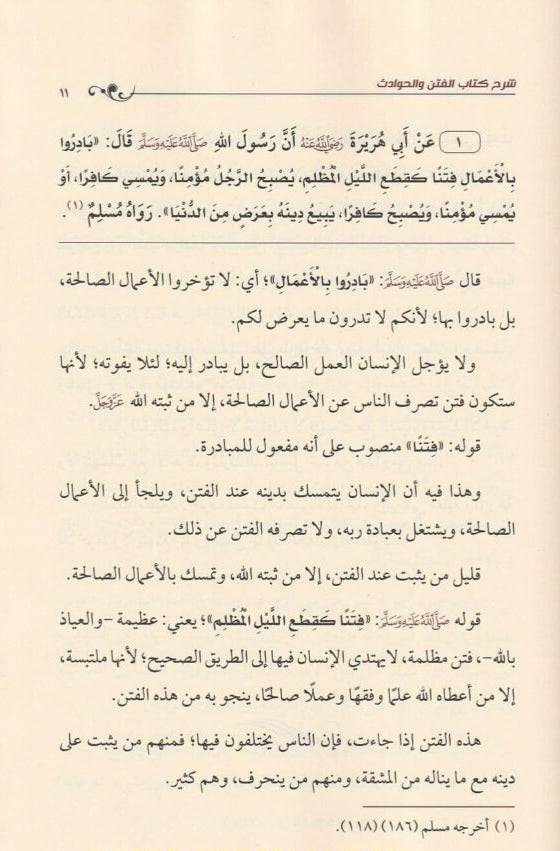 شرح كتاب الفتن والحوادث
١١
١ عَنْ أَبِي هُرَيْرَةَ رَضِيَ اللَّهُ عَنْهُ أَنَّ رَسُولَ اللهِ صَلَّى اللَّهُ عَلَيْهِ وَسَلَّمَ قَالَ: «بَادِرُوا
بِالْأَعْمَالِ فِتَنًا كَقِطَعِ اللَّيْلِ الْمُظْلِمِ، يُصْبِحُ الرَّجُلُ مُؤْمِنًا، وَيُمْسِي كَافِرًا، أَوْ
يُمْسِي مُؤْمِنًا، وَيُصْبِحُ كَافِرًا، يَبِيعُ دِينَهُ بِعَرَضٍ مِنَ الدُّنْيَا». رَوَاهُ مُسْلِمٌ (١).
قال صَلَّى اللَّهُ عَلَيْهِ وَسَلَّمَ: «بَادِرُوا بِالْأَعْمَالِ»؛ أي: لا تؤخروا الأعمال الصالحة،
بل بادروا بها؛ لأنكم لا تدرون ما يعرض لكم.
ولا يؤجل الإنسان العمل الصالح، بل يبادر إليه؛ لئلا يفوته؛ لأنها
ستكون فتن تصرف الناس عن الأعمال الصالحة، إلا من ثبته الله عَزَّوَجَلَّ.
قوله: «فِتَنًا» منصوب على أنه مفعول للمبادرة.
وهذا فيه أن الإنسان يتمسك بدينه عند الفتن، ويلجأ إلى الأعمال
الصالحة، ويشتغل بعبادة ربه، ولا تصرفه الفتن عن ذلك.
قليل من يثبت عند الفتن، إلا من ثبته الله، وتمسك بالأعمال الصالحة.
قوله صَلَّى اللَّهُ عَلَيْهِ وَسَلَّمَ: «فِتَنًا كَقِطَعِ اللَّيْلِ الْمُظْلِمِ»؛ يعني: عظيمة -والعياذ
بالله-، فتن مظلمة، لا يهتدي الإنسان فيها إلى الطريق الصحيح؛ لأنها ملتبسة،
إلا من أعطاه الله علمًا وفقهًا وعملًا صالحًا، ينجو به من هذه الفتن.
هذه الفتن إذا جاءت، فإن الناس يختلفون فيها؛ فمنهم من يثبت على
دينه مع ما يناله من المشقة، ومنهم من ينحرف، وهم كثير.
(١) أخرجه مسلم (١٨٦) (١١٨).